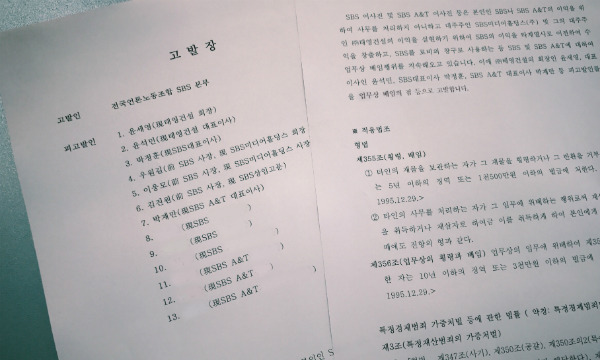 고 발 장
고발인 전국언론노동조합 SBS 본부
피고발인 1. 윤세영(現태영건설 회장)
2. 윤석민(現태영건설 대표이사)
3. 박정훈(現SBS대표이사)
4. 우원길(前 SBS 사장, 現 SBS미디어홀딩스 회장
5. 이웅모(前 SBS 사장, 現 SBS미디어홀딩스 사장
6. 김진원(前 SBS 사장, 現 SBS상임고문)
7. 박재만(現SBS A&T 대표이사)
8. (現SBS )
9. (現SBS )
10. (現SBS )
11. (現SBS A&T
12. (現SBS A&T )
13. (現SBS A&T )
SBS 이사진 및 SBS A&T 이사진 등은 본인인 SBS나 SBS A&T의 이익을 위
하여 사무를 처리하지 아니하고 대주주인 SBS미디어홀딩스(주) 및 그의 대주주
인 ㈜태영건설의 이익을 실현하기 위하여 SBS의 이익을
익을 창출하고, SBS를 로비와 창구로 사용하는 등 SBS 및 SBS A&T에 대하여
업무상 배임행위를 지속해오고 있습니다. 이에 ㈜태영건설의 회장인 윤세영, 대표
이사인 윤석민, SBS대표이사 박정훈, SBS A&T 대표이사 박재만 등 피고발인들
을 업무상 배임의 점 등으로 고발합니다.
※ 적용법조
형법
제355조(횡령, 배임)
① 타인의 재물을 보관하는 자가 그 재물을 횡령하거나 그 반환을 거부
는 5년 이하의 징역 또는 1천500만원 이하의 벌금에 처한다.
1995.12.29.>
② 타인의 사무를 처리하는 자가 그 임무에 위배하는 행위로써 재산
을 취득하거나 제삼자로 하여금 이를 취득하게 하여 본인에게
때에도 전항의 형과 같다.
제356조(업무상의 횡령과 배임) 업무상의 임무에 위배하여 제355
한 자는 10년 이하의 징역 또는 3천만원 이하의 벌금에
1995.12.29.>
특정경제범죄 가중처벌 등에 관한 법률 ( 약칭: 특정경제범죄법
제3조(특정재산범죄의 가중처벌)
제347조(사기), 제350조(공갈), 제350조의2(특수